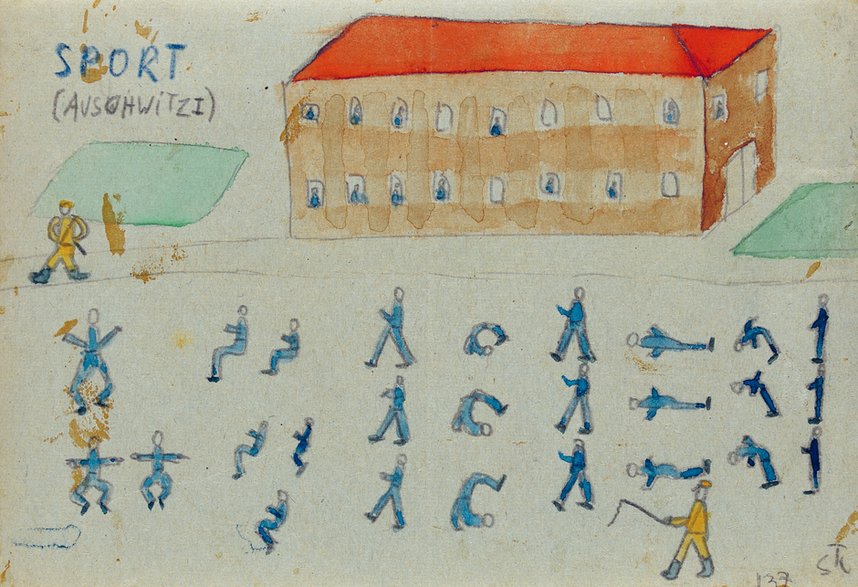 SPORT
(AUSCHWiTZ I)
137